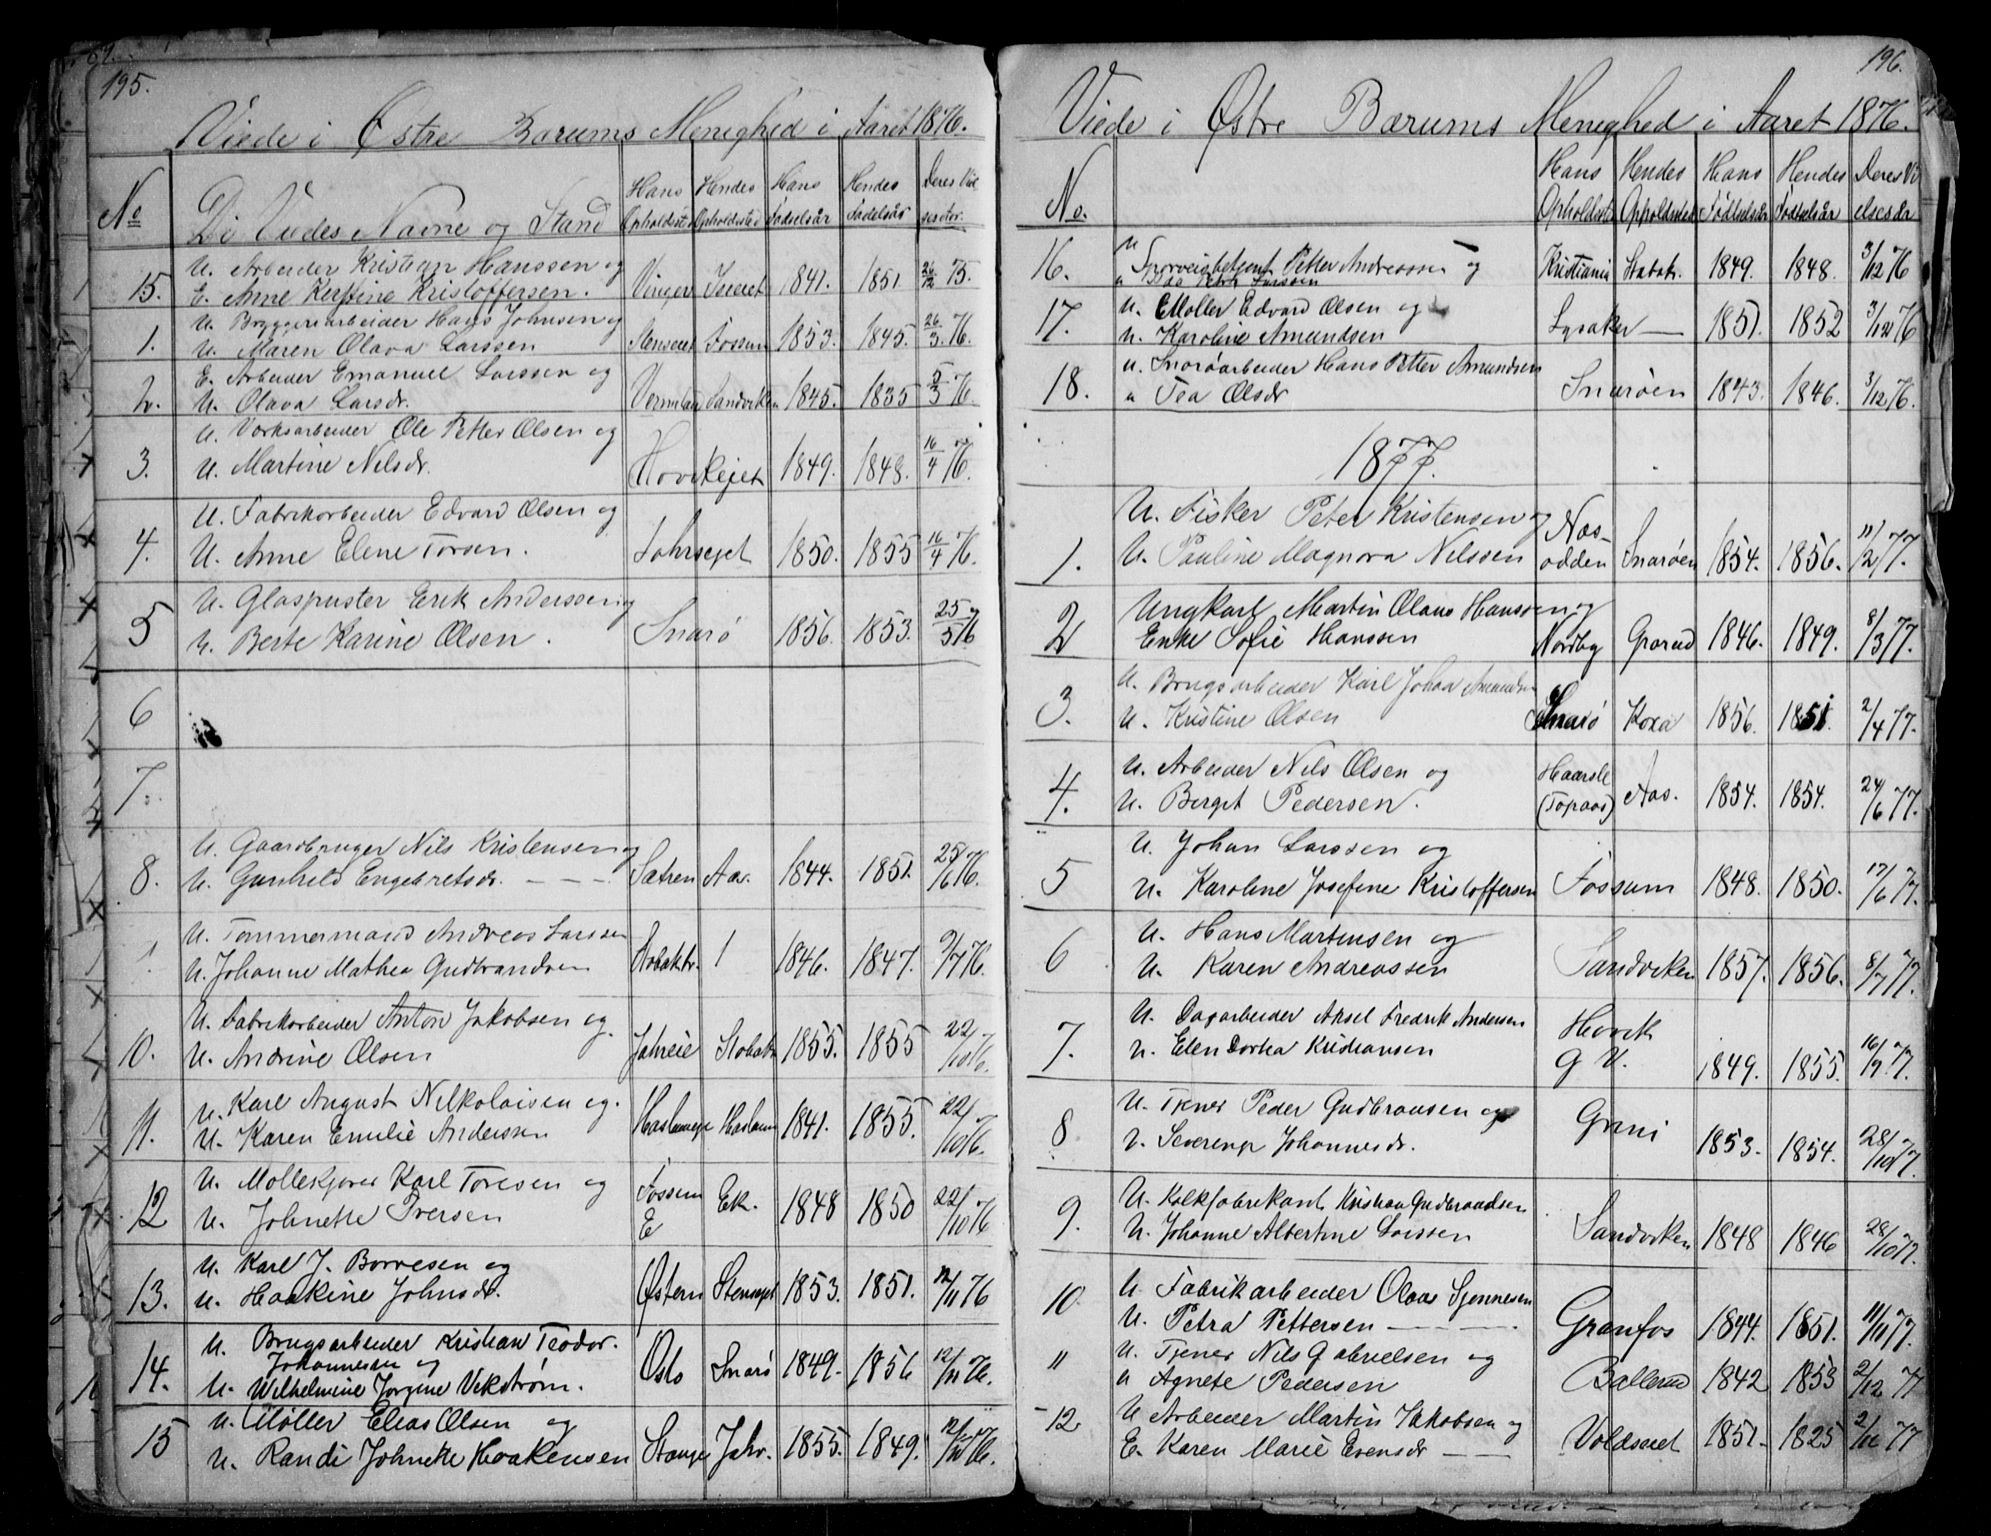 195.
Viede i Østre Bærums Menighed i Aaret 1876.
No De Viedes Navne og Stand Hans Opholdsst Hendes Opholdssted Hans Fødselsår Hendes Fødselsår Deres Viel
U. Arbeider Kristian Hanssen og
15. E. Anne Kristoffersen. Vinger 1841. 1851 26/12 75.
U. Bryggeriarbeider Hans Johnsen og
1. U. Maren Olava Larssen Fossum 1853. 1845. 26/3 76.
E. Arbeider Emanuel Larssen og
2. U. Olava Larsdr. Sandviken 1845. 1835 5/3 76
U. Værksarbeider Ole Petter Olsen og
3. U. Martine Nilsdr. Hovikejet 1849. 1848. 16/4 76.
U. Fabrikarbeider Edvard Olsen og
4. U. Anne Elene Torsen. 1850. 1855 16/4 76.
U. Glaspuster Erik Anderssen og
5 U. Berte Karine Olsen. Snarø 1856. 1853. 25/5 76
6
7.
U. Gaardbruger Nils Kristensen og
8. U. Gunhild Engebretsdr. — — — Sætren Aa. 1844. 1851. 25/6 76.
U. Tømmermand Andreas Larssen
U. Johanne Mathea Gudbrandsen 1846. 1847. 9/7 76.
U. Fabrikarbeider Anton Jakobsen og
10. U. Andrine Olsen Stabæk 1855. 1855 22/10 76.
U. Karl August Nilkolaisen og.
11. U. Karen Emilie Anderssen Haslum 1841. 1855. 22/10 76.
U. Møllekjører Karl Toresen og
12 U. Johnette Iversen Fossum E Ek. 1848 1850 22/10 76
U. Karl J. Borresen og
13. U. Haakine Johnsdr. Østern 1853. 1851. 12/11 76
U. Brugsarbeider Kristian Teodor.
Johannesen og
14. U. Wilhelmine Jorgine Vekstrøm. Oslo Snarø 1849. 1856 12/11 76.
U. Møller Elias Olsen og
15 U. Randi Johneke Haakensen Stange Jahr. 1855. 1849. 12/11 76.
196.
Viede i Østre Bærums Menighed i Aaret 1876.
No. Hans Opholdsst Hendes Opholdssted Hans Fødselsår Hendes Fødselsår Deres Vi elsesår
U Sporveisbetjent Petter Andreassen og
16. Larssen Kristiania Stabæk. 1849. 1848. 3/12 76
U. Møller Edvard Olsen og
17. U. Karoline Amundsen Lysaker — 1851. 1852 3/12 76
U. Snarøarbeider Hans Petter Amundsen
18. U Tea Olsdr Snarøen 1843. 1846. 3/12 76.
1877.
U. Fisker Peter Kristensen og
1. U. Pauline Magnora Nilssen Næs-odden Snarøen 1854. 1856. 11/2 77.
Ungkarl Martin Olaus Hanssen og
2 Enke Sofie Hanssen Nordby Grorud 1846. 1849. 8/3 77.
U. Brugsarbeider Karl Johan Amundsen
3. U. Kristine Olsen Snarø Koxa 1856. 1851. 2/4 77.
U. Arbeider Nils Olsen og
4. U. Berget Pedersen. (Topaas) Aas. 1854. 1854. 24/6 77.
U. Johan Larssen og
5 U. Karoline Josefine Kristoffersen Fossum 1848. 1850. 17/6 77.
U. Hans Martinsen og
6 U. Karen Andreassen Sandviken 1857. 1856. 8/7 77.
U. Dagarbeider Aksel Fredrik Andersen
7. U. Elen Dortea Kristiansen Hovik G V. 1849. 1855. 16/9 77.
U. Tjener Peder Gudbransen og
8. U. Johannesdr. Grini 1853. 1854. 28/10 77.
U. Kalkfabrikant Kristian Gudbrandsen
9. U. Johanne Albertine Larssen Sandviken 1848 1846 28/10 77.
U. Fabrikarbeider Olaus Sjønnesen
10. U. Petra Pettersen — — — Granfos 1844. 1851. 11/11 77.
11 U. Tjener Nils Gabrielsen og
U Agnete Pedersen Ballerud 1842 1853 2/12 77
12. U Arbeider Martin Jakobsen og
E. Karen Marie Evensdr — — Voldseiet 1851. 1825 77